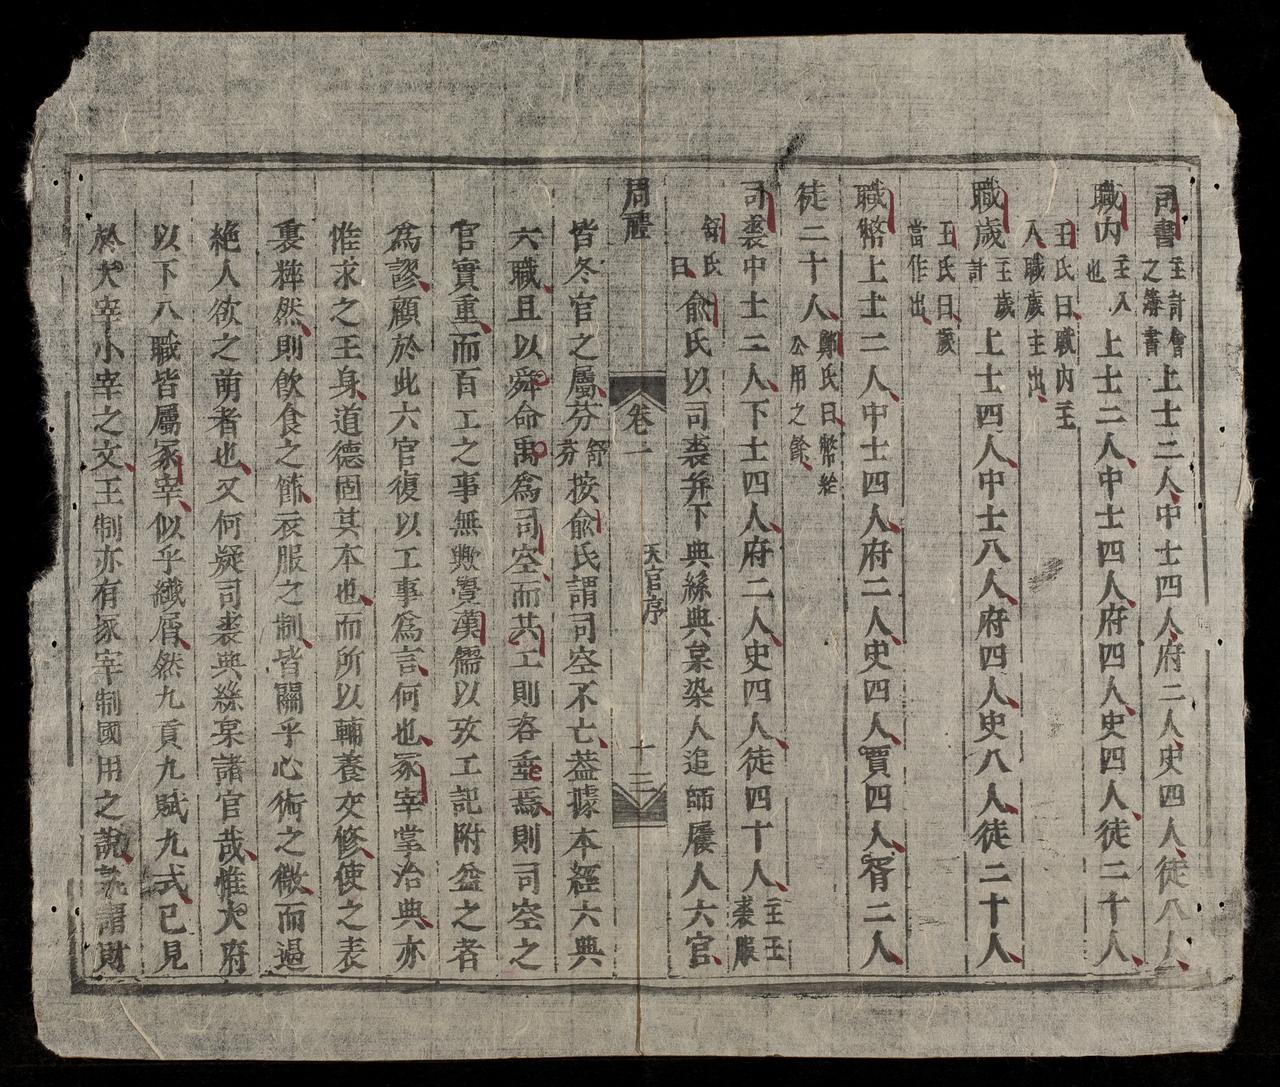 司書主計會之簿書上士二人中士四人府二人史四人徒八人
職内主入也上士二人中士四人府四人史四人徒二十人
王氏曰職内主入職歲主出
職歲主歲計上士四人中士八人府四人史八人徒二十人
王氏曰歲當作出
職幣上士二人中士四人府二人史四人賈四人胥二人
徒二十人鄭氏曰幣給公用之餘
司裘中士二人下士四人府二人史四人徒四十人主王裘服
舒氏曰俞氏以司裘并下典絲典枲染人追師屨人六官
周禮 卷一 天官序 十三
皆冬官之屬芬舒芬按俞氏謂司空不亡葢據本經六典
六職且以舜命禹爲司空而共工則咨垂焉則司空之
官實重而百工之事無與漢儒以攷工記附益之者
爲謬顧於此六官復以工事爲言何也冢宰掌治典亦
惟求之王身道德固其本也而所以輔養交修使之表
裏粹然則飲食之節衣服之制皆關乎心術之微而遏
絶人欲之萌者也又何疑司裘典絲枲諸官哉惟大府
以下八職皆屬冢宰似乎纖屑然九貢九賦九式已見
於大宰小宰之文王制亦有冢宰制國用之說孰謂財